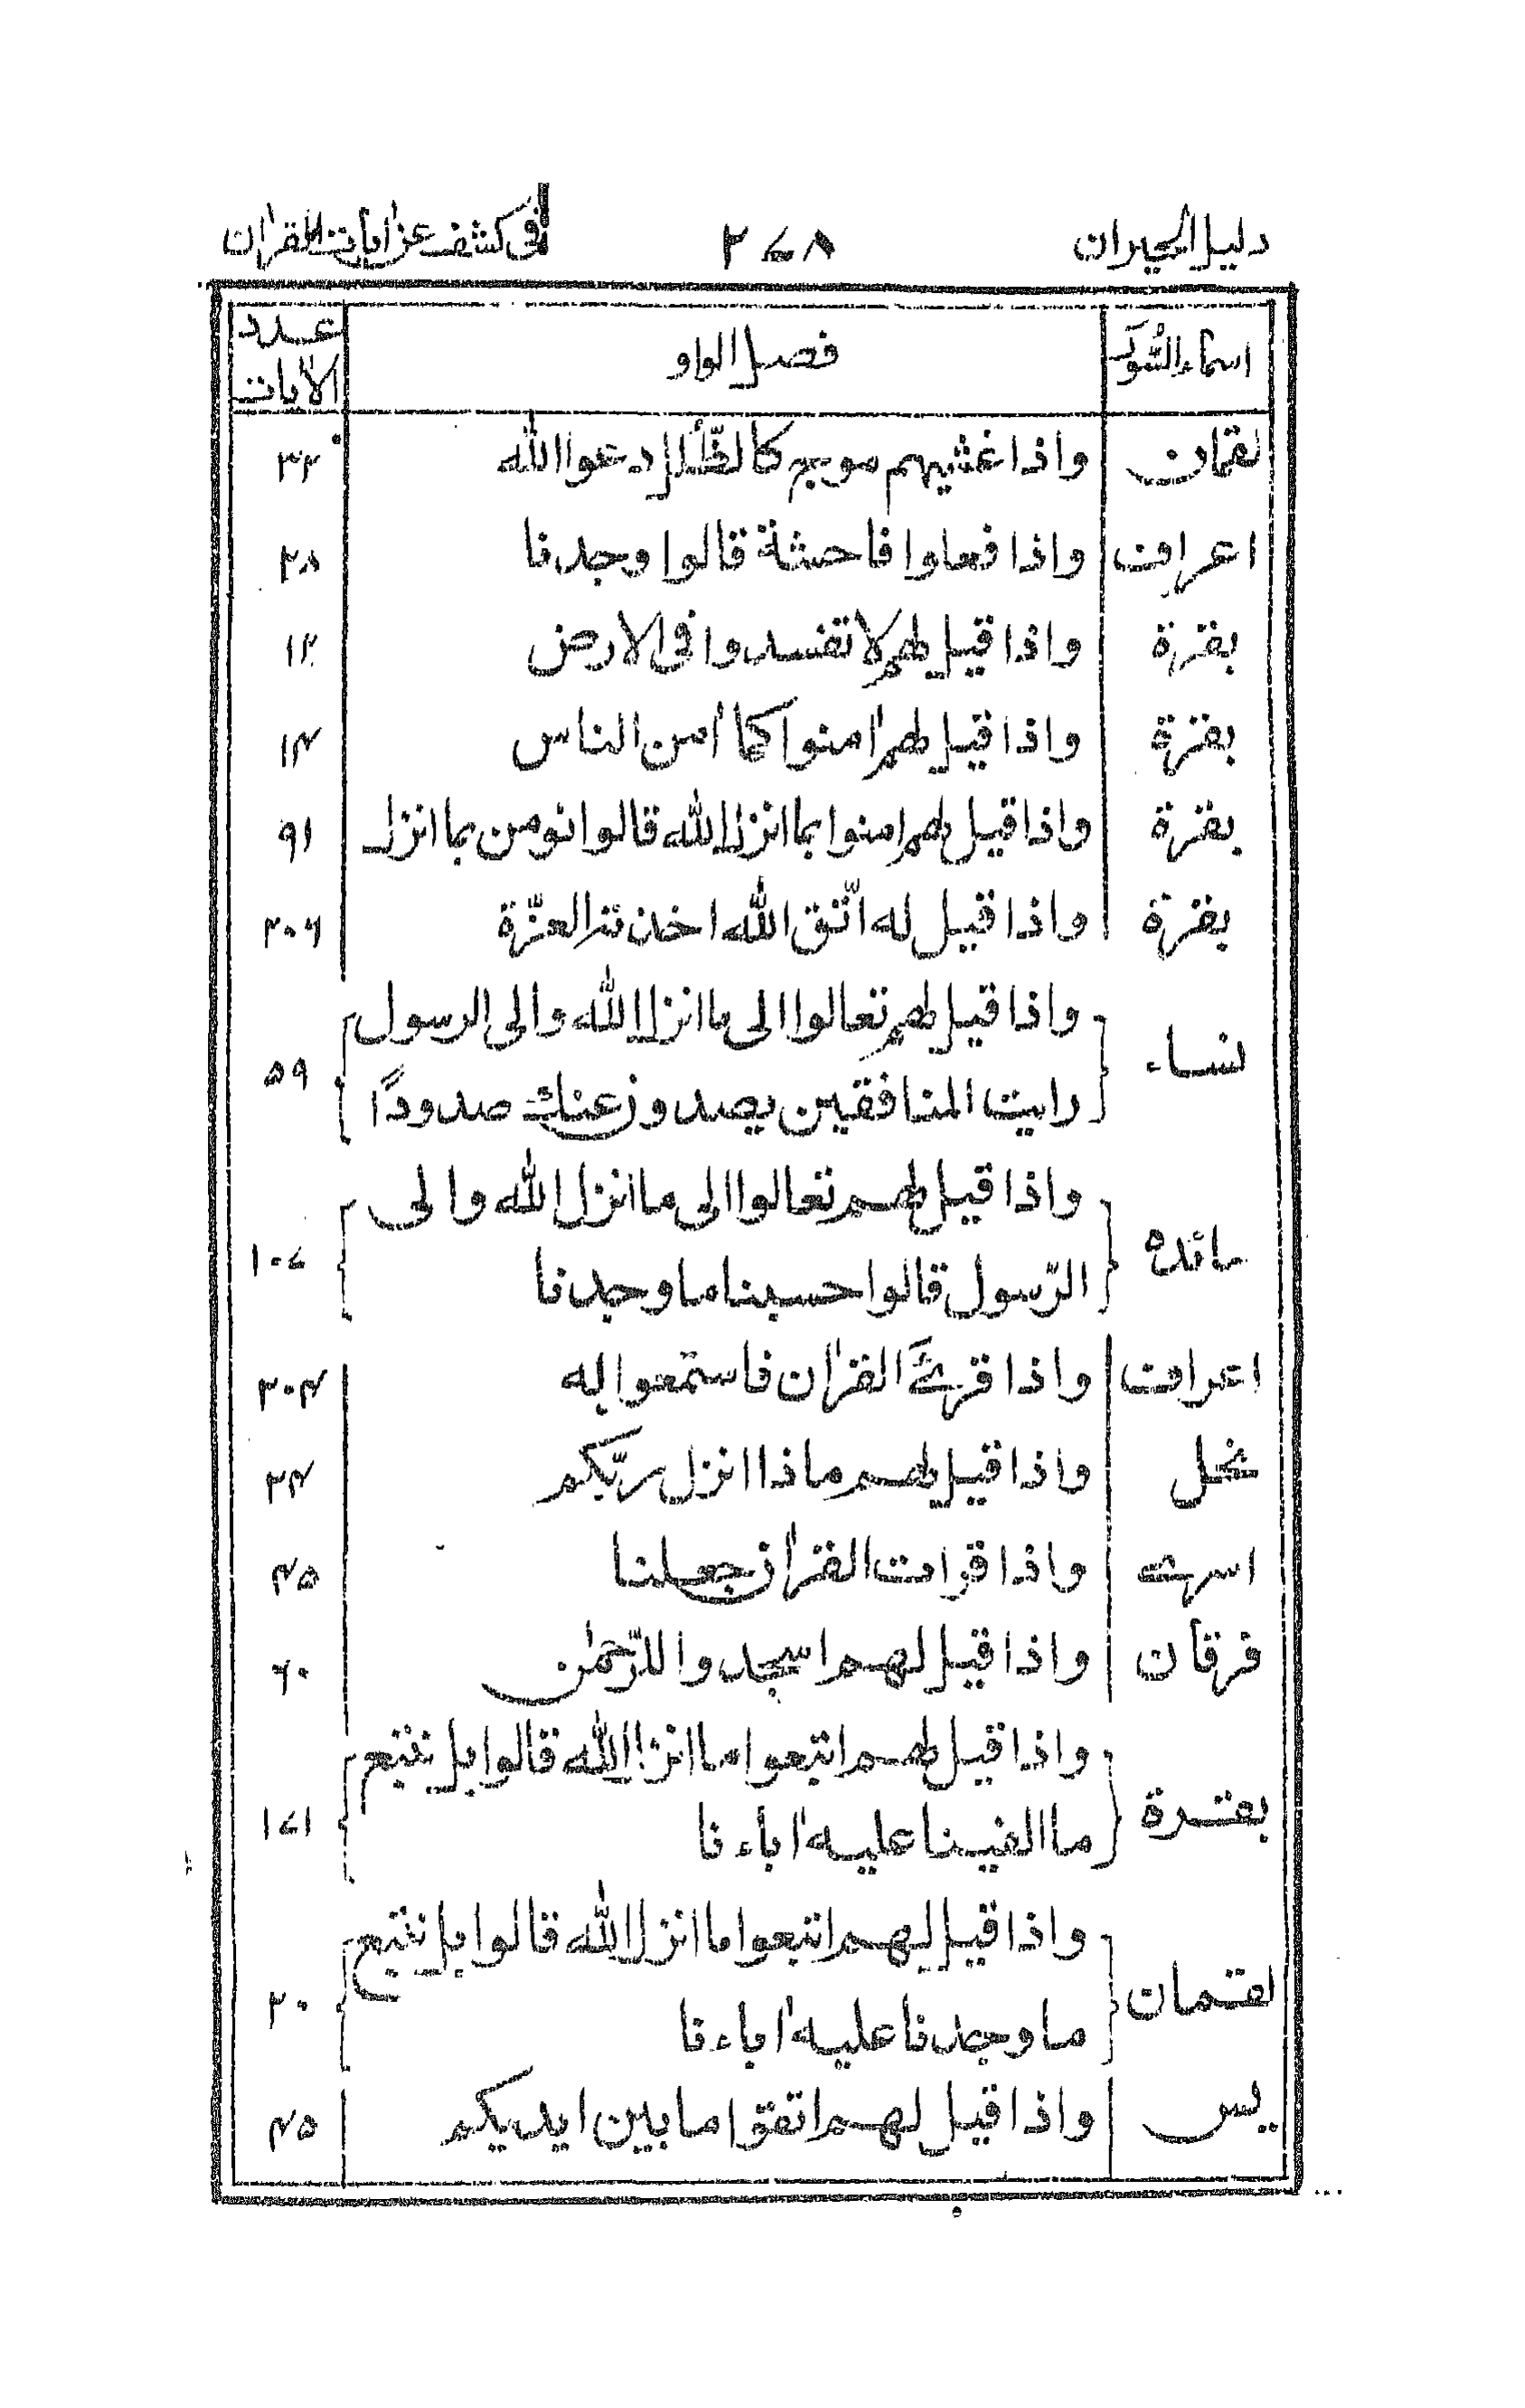 دليل الحيران ٢٧٨ في كشف عن اٰيات القراٰن
اسماء السُّوَر فصل الواو عدد الاٰيات
لقمان واذا غشيهم موج كالظُّلل دعوا الله ٣٢
اعراف واذا فعلوا فاحشة قالوا وجدنا ٢٨
بقرة واذا قيل لهم لا تفسدوا فى الارض ١٢
بقرة واذا قيل لهم اٰمنوا كما اٰمن الناس ١٣
بقرة واذا قيل لهم امنوا بما انزل الله قالوا نومن بما انزل ٩١
بقرة واذا قيل له اتّق الله اخذته العزّة ٢٠٦
نساء واذا قيل لهم تعالوا الى ما انزل الله والى الرسول
رايت المنافقين يصدون عنك صدودًا ٥٩
مائده واذا قيل لهم تعالوا الى ما انزل الله والى
الرّسول قالوا حسبنا ما وجدنا ١٠٧
اعراف واذا قرئَ القراٰن فاستمعوا له ٢٠٤
نحل واذا قيل لهم ماذا انزل ربّكم ٢٤
اسرى واذا قرات القراٰن جعلنا ٤٥
فرقان واذا قيل لهم اسجدوا للرّحمٰن ٦٠
بقرة واذا قيل لهم اتبعوا ما انزل الله قالوا بل نتبع
ما الفينا عليه اٰباءنا ١٧١
لقمان واذا قيل لهم اتبعوا ما انزل الله قالوا بل نتبع
ما وجدنا عليه اٰباءنا ٢٠
يس واذا قيل لهم اتقوا ما بين ايديكم ٤٥